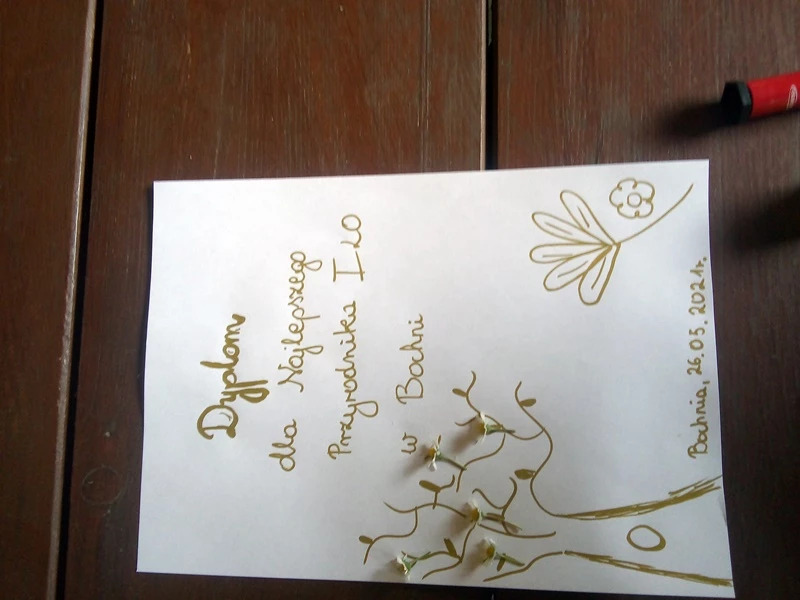 Dyplom
dla Najlepszego
Przyrodnika I LO
w Bochni
Bochnia, 26.05.2021r.